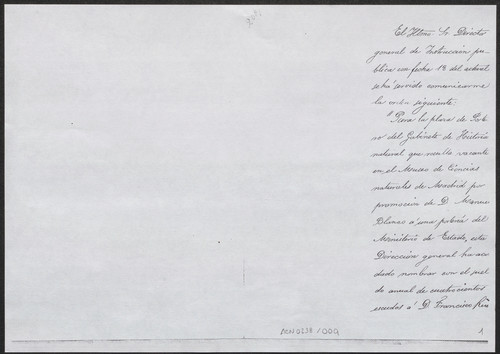 El Iltmo Sr. Director
general de Instrucción pú-
blica con fecha 18 del actual
se ha servido comunicarme
la orden siguiente:
"Para la plaza de
del Gabinete de Historia
natural que resulta vacante
en el Museo de Ciencias
naturales de Madrid por
promoción de D. Manuel
Blanco á una portería del
Ministerio de Estado, esta
Dirección general ha acor-
dado nombrar con el suel-
do anual de cuatrocientos
escudos á D. Francisco
MN0238/009
1